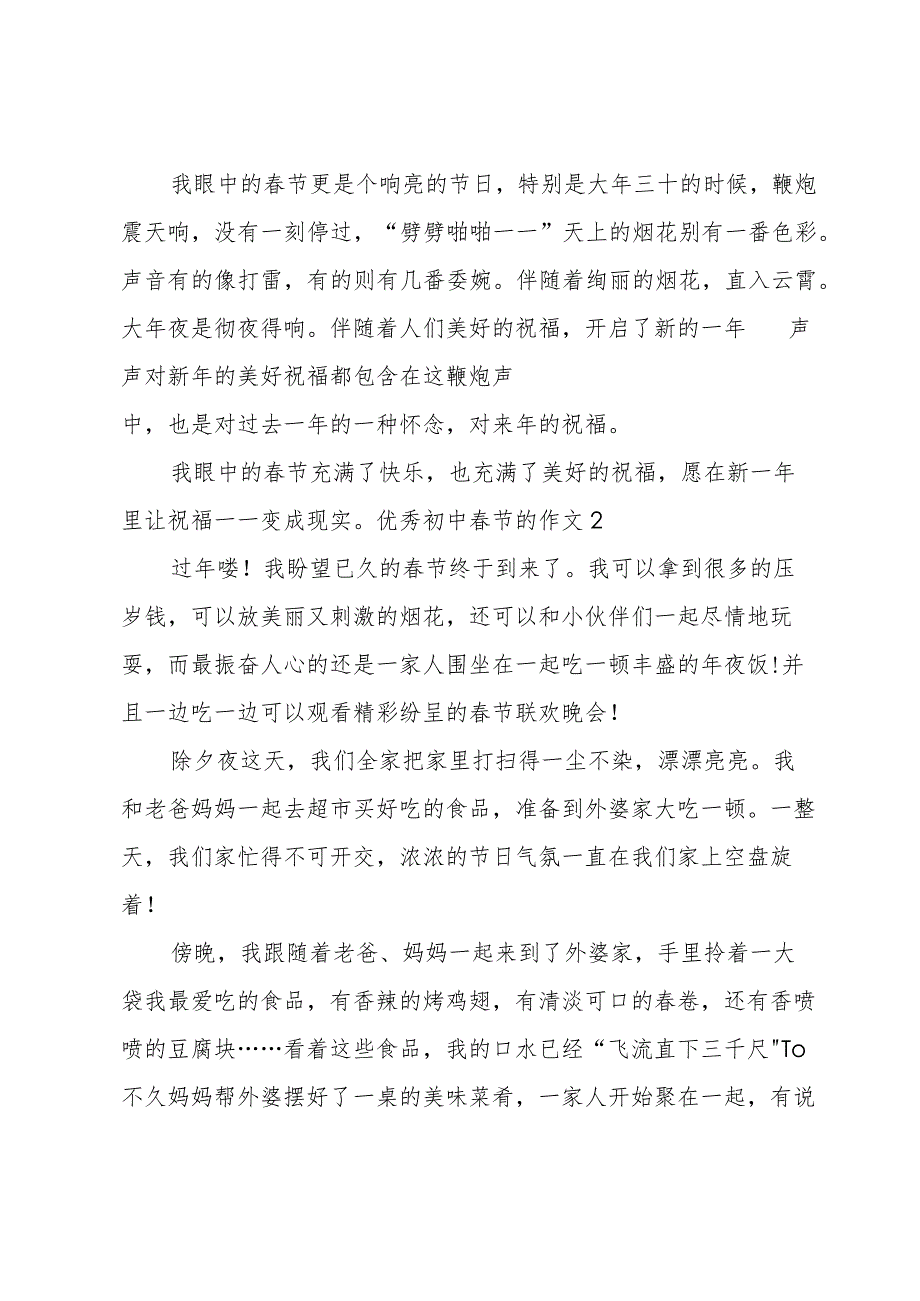 我眼中的春节更是个响亮的节日，特别是大年三十的时候，鞭炮
震天响，没有一刻停过，“劈劈啪啪一一”天上的烟花别有一番色彩。
声音有的像打雷，有的则有几番委婉。伴随着绚丽的烟花，直入云霄。
大年夜是彻夜得响。伴随着人们美好的祝福，开启了新的一年 声
声对新年的美好祝福都包含在这鞭炮声
中，也是对过去一年的一种怀念，对来年的祝福。
我眼中的春节充满了快乐，也充满了美好的祝福，愿在新一年
里让祝福一一变成现实。优秀初中春节的作文2
过年喽！我盼望已久的春节终于到来了。我可以拿到很多的压
岁钱，可以放美丽又刺激的烟花，还可以和小伙伴们一起尽情地玩
耍，而最振奋人心的还是一家人围坐在一起吃一顿丰盛的年夜饭!并
且一边吃一边可以观看精彩纷呈的春节联欢晚会！
除夕夜这天，我们全家把家里打扫得一尘不染，漂漂亮亮。我
和老爸妈妈一起去超市买好吃的食品，准备到外婆家大吃一顿。一整
天，我们家忙得不可开交，浓浓的节日气氛一直在我们家上空盘旋
着！
傍晚，我跟随着老爸、妈妈一起来到了外婆家，手里拎着一大
袋我最爱吃的食品，有香辣的烤鸡翅，有清淡可口的春卷，还有香喷
喷的豆腐块……看着这些食品，我的口水已经“飞流直下三千尺"To
不久妈妈帮外婆摆好了一桌的美味菜肴，一家人开始聚在一起，有说